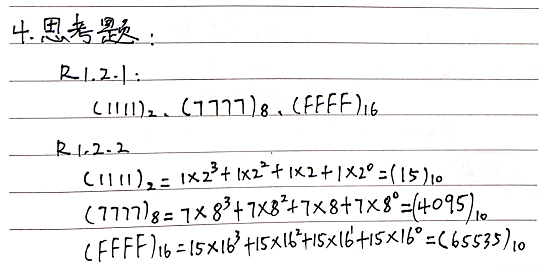 4.思考题：
R1.2.1：
(1111)₂、(7777)₈、(FFFF)₁₆
R1.2.2
(1111)₂=1×2³+1×2²+1×2+1×2⁰=(15)₁₀
(7777)₈=7×8³+7×8²+7×8+7×8⁰=(4095)₁₀
(FFFF)₁₆=15×16³+15×16²+15×16¹+15×16⁰=(65535)₁₀